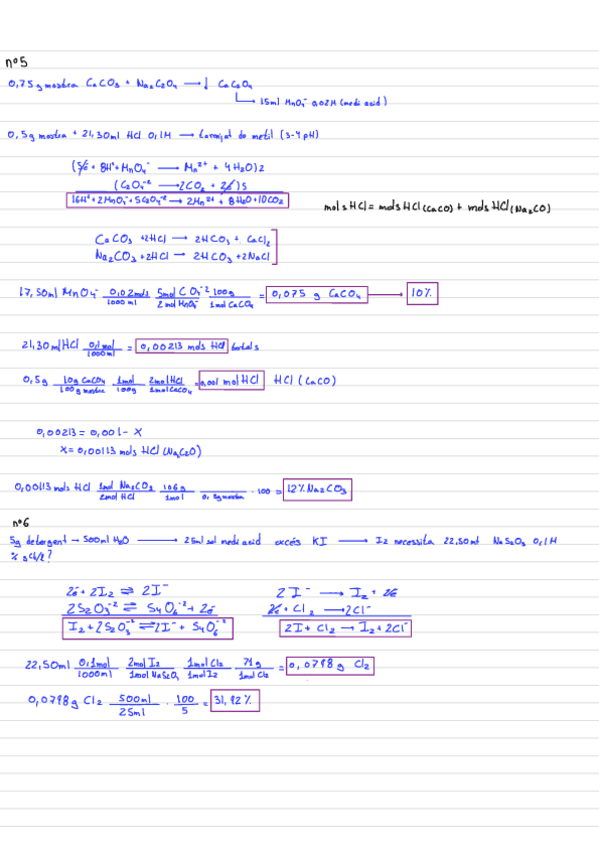 nº5
0,75g mostra CaCO3 + Na2C2O4 → ↓ CaC2O4
15ml MnO4⁻ 0,02M (medi acid)
0,5g mostra + 21,30ml HCl 0,1M → taronjat de metil (3-4 pH)
(5e⁻ + 8H⁺ + MnO4⁻ → Mn²⁺ + 4H2O)2
(C2O4⁻² → 2CO2 + 2e⁻)5
16H⁺ + 2MnO4⁻ + 5C2O4⁻² → 2Mn²⁺ + 8H2O + 10CO2
mols HCl = mols HCl (CaCO) + mols HCl (Na2CO)
CaCO3 + 2HCl → 2HCO3 + CaCl2
Na2CO3 + 2HCl → 2HCO3 + 2NaCl
17,50ml MnO4⁻ 0,02mols/1000ml 5mol C O4⁻²/2mol MnO4 100g/1mol CaCO4 = 0,075 g CaCO4 → 10%
21,30ml HCl 0,1mol/1000ml = 0,00213 mols HCl totals
0,5g 10g CaCO4/100g mostra 1mol/100g 2mol HCl/1mol CaCO4 = 0,001 mol HCl HCl (CaCO)
0,00213 = 0,001 - x
x = 0,00113 mols HCl (Na2C2O)
0,00113 mols HCl 1mol Na2CO3/2mol HCl 106g/1mol /0,5g mostra · 100 = 12% Na2CO3
nº6
5g detergent → 500ml H2O → 25ml sol medi acid excés KI → I2 necessita 22,50ml NaS2O3 0,1M
% Cl2?
2e⁻ + 2I2 ⇌ 2I⁻ 2I⁻ → I2 + 2e⁻
2S2O3⁻² ⇌ S4O6⁻² + 2e⁻ 2e⁻ + Cl2 → 2Cl⁻
I2 + 2S2O3⁻² ⇌ 2I⁻ + S4O6⁻² 2I + Cl2 → I2 + 2Cl⁻
22,50ml 0,1mol/1000ml 2mol I2/1mol NaS2O3 1mol Cl2/1mol I2 71g/1mol Cl2 = 0,0798g Cl2
0,0798g Cl2 500ml/25ml · 100/5 = 31,92%